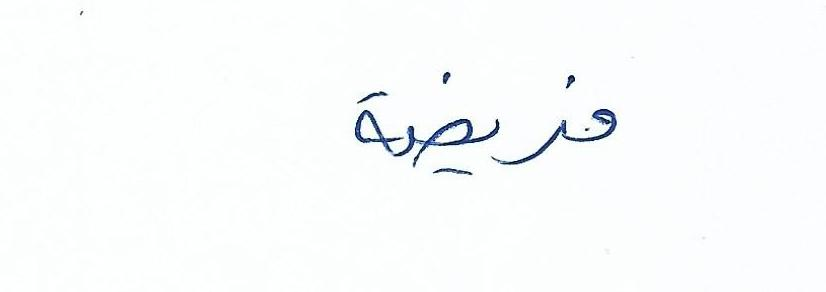 فريضة